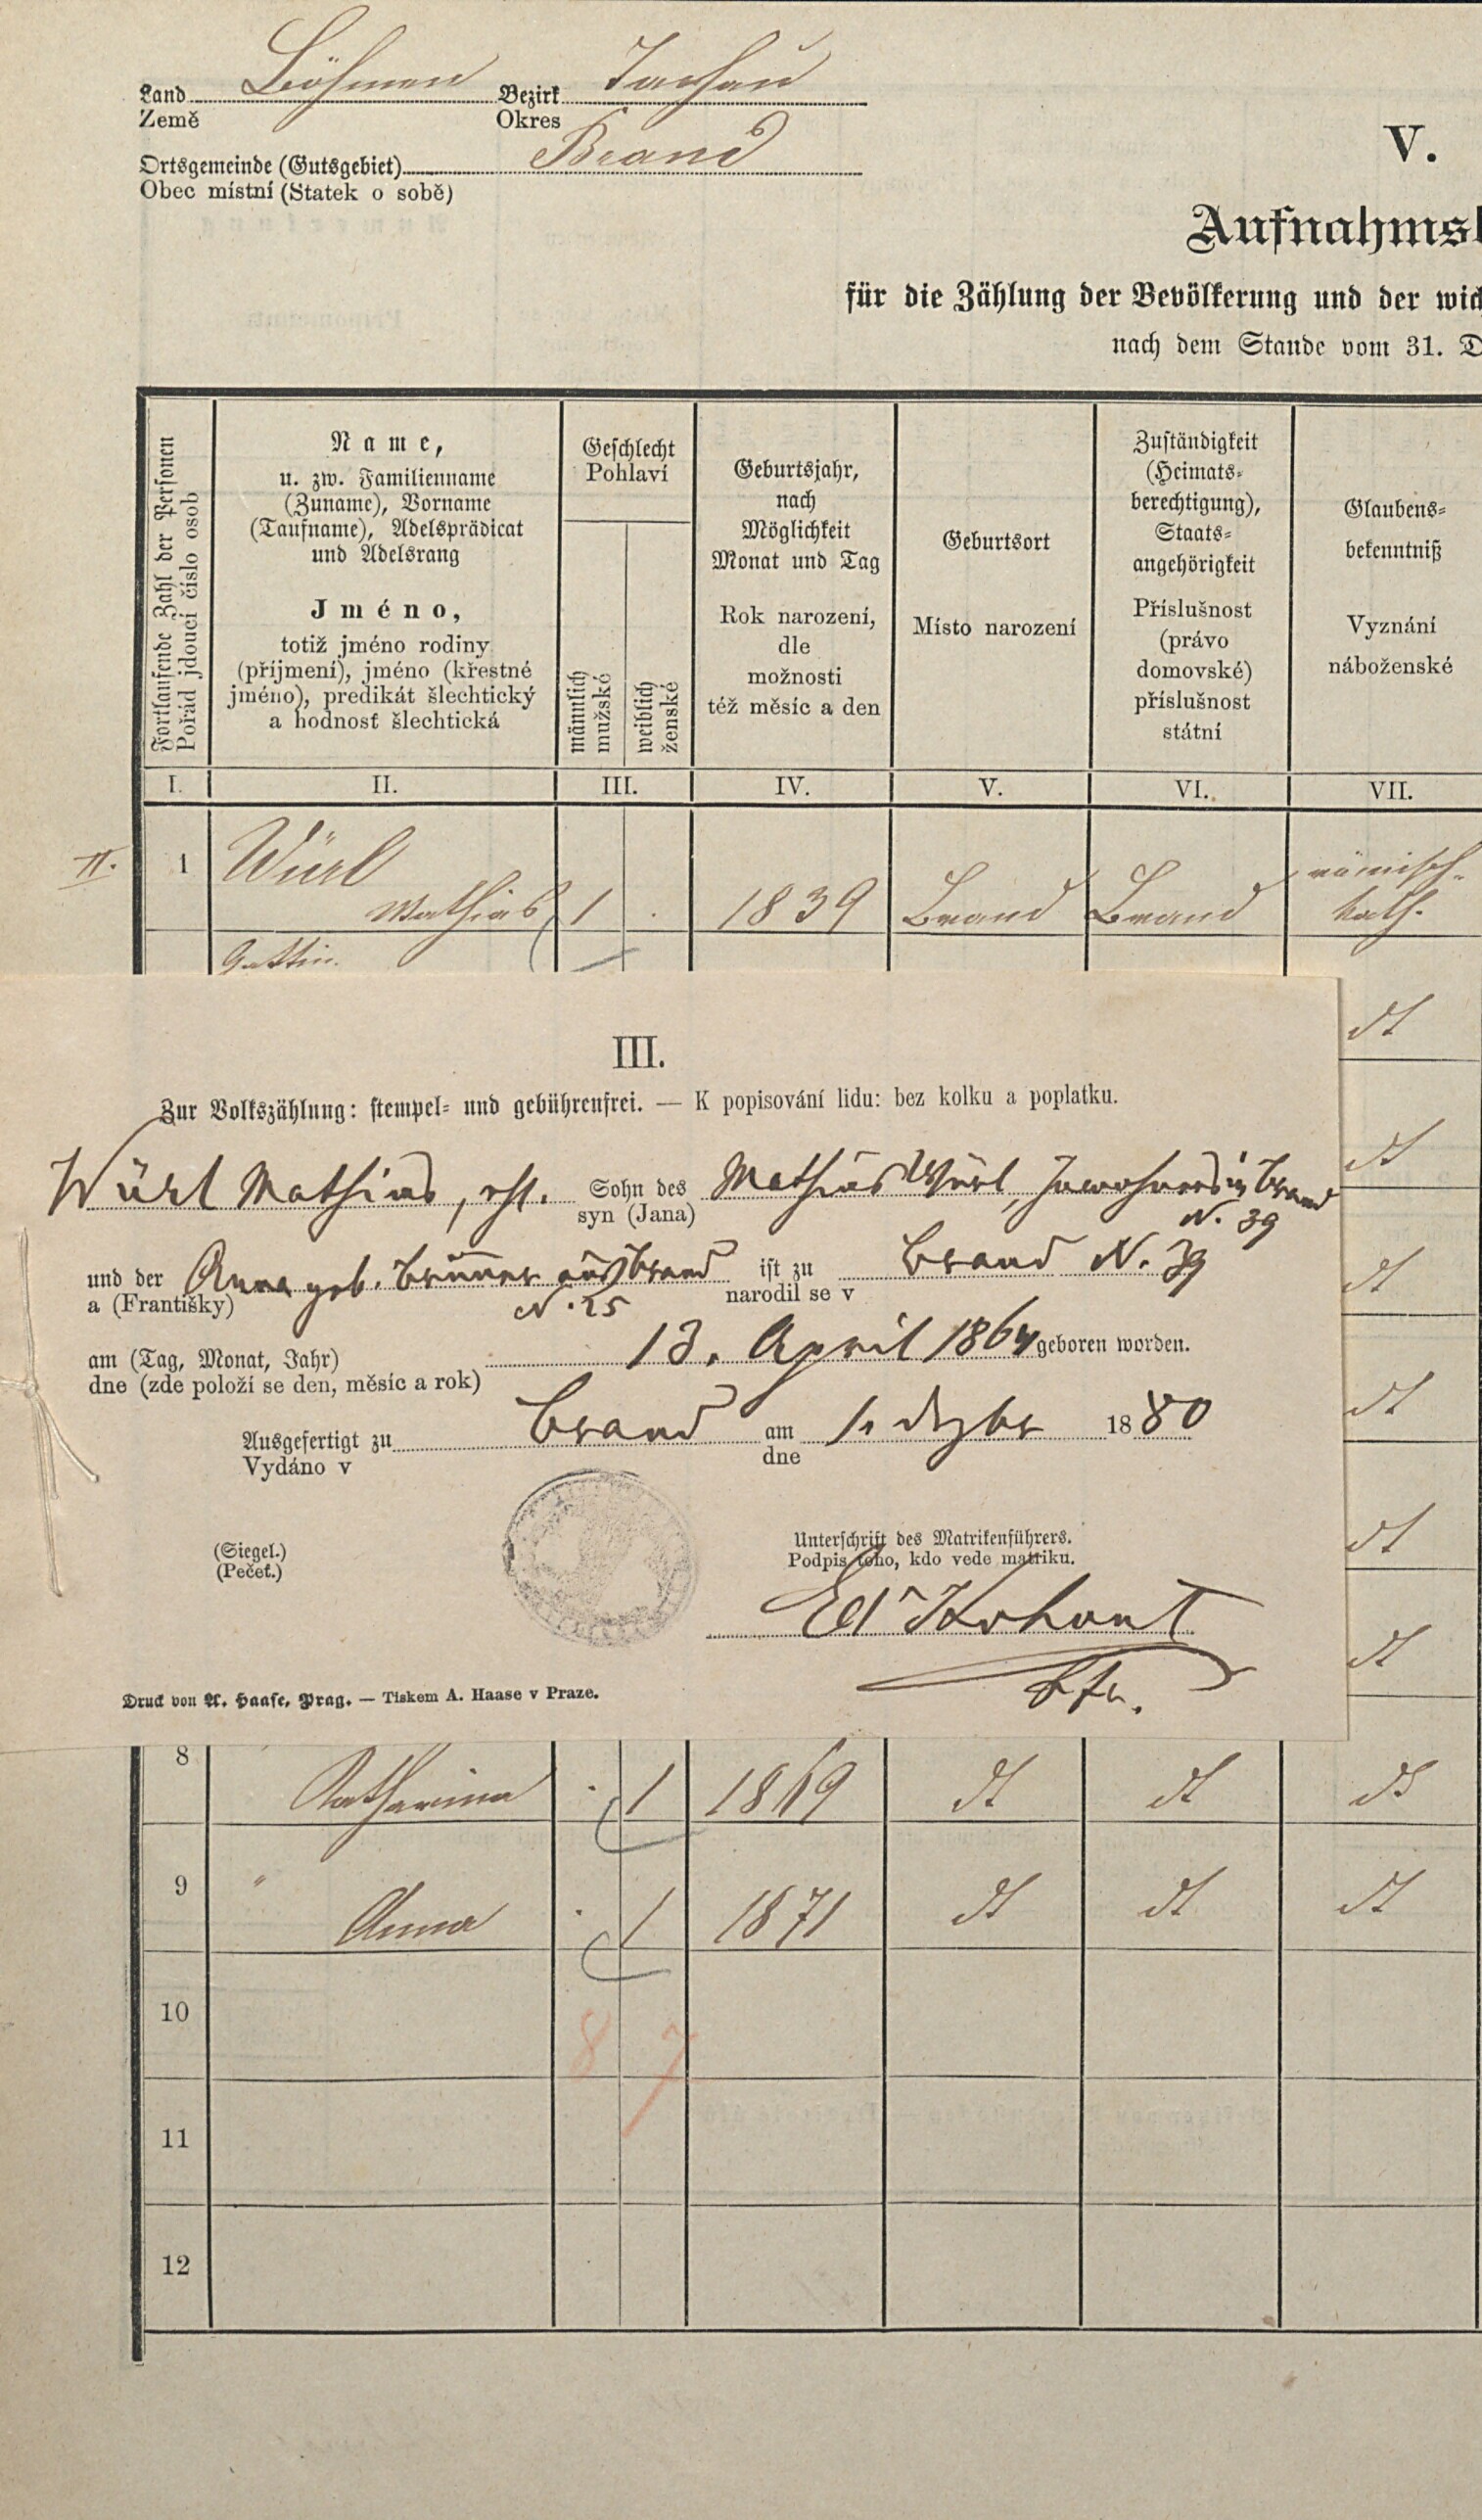 Land Böhmen Bezirk Tachau
Země Okres
Ortsgemeinde (Gutsgebiet) Brand
Obec místní (Statek o sobě)
V.
Aufnahms
für die Zählung der Bevölkerung und der wich
nach dem Stande vom 31. D
Fortlaufende Zahl der Personen
Pořád jdoucí číslo osob
Name,
u. zw. Familienname
(Zuname), Vorname
(Taufname), Adelsprädicat
und Adelsrang
Jméno,
totiž jméno rodiny
(příjmení), jméno (křestné
jméno), predikát šlechtický
a hodnosť šlechtická
Geschlecht
Pohlaví
männlich
mužské
weiblich
ženské
Geburtsjahr,
nach
Möglichkeit
Monat und Tag
Rok narození,
dle
možnosti
též měsíc a den
Geburtsort
Místo narození
Zuständigkeit
(Heimats-
berechtigung),
Staats-
angehörigkeit
Příslušnost
(právo
domovské)
příslušnost
státní
Glaubens-
bekenntniß
Vyznání
náboženské
I. II. III. IV. V. VI. VII.
II. 1 Würl römisch-
Mathias 1 . 1839 Brand Brand kath.
Gattin
dt
III.
Zur Volkszählung: stempel- und gebührenfrei. — K popisování lidu: bez kolku a poplatku.
Würl Mathias, ehl. Sohn des Mathias Würl, Inwohners in Brand
syn (Jana) N. 39
und der Anna geb. Brunner aus Brand ist zu Brand N. 39
a (Františky) N. 25 narodil se v
am (Tag, Monat, Jahr) 13. April 1864 geboren worden.
dne (zde položí se den, měsíc a rok)
Ausgefertigt zu Brand am 1. Dezbr 1880
Vydáno v dne
(Siegel.)
(Pečeť.)
Unterschrift des Matrikenführers.
Podpis toho, kdo vede matriku.
Druck von A. Haase, Prag. — Tiskem A. Haase v Praze.
dt
dt
dt
dt
dt
8 Katharina . 1 1869 dt dt dt
9 " Anna . 1 1871 dt dt dt
10
8 7
11
12